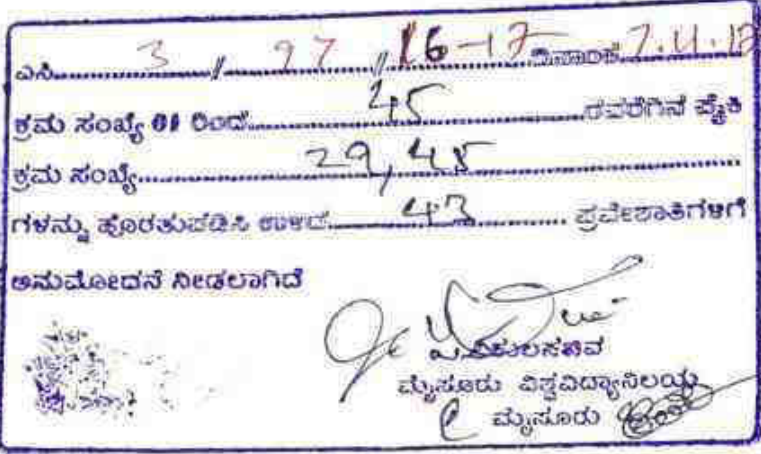 ಎಸಿ 3 / 97 / 16-17 ದಿನಾಂಕ 7.11.17
ಕ್ರಮ ಸಂಖ್ಯೆ 01 ರಿಂದ 45 ರವರೆಗಿನ ಪೈಕಿ
ಕ್ರಮ ಸಂಖ್ಯೆ 29, 45
ಗಳನ್ನು ಹೊರತುಪಡಿಸಿ ಉಳಿದ 43 ಪ್ರವೇಶಾತಿಗಳಿಗೆ
ಅನುಮೋದನೆ ನೀಡಲಾಗಿದೆ
ಕುಲಸಚಿವ
ಮೈಸೂರು ವಿಶ್ವವಿದ್ಯಾನಿಲಯ
ಮೈಸೂರು